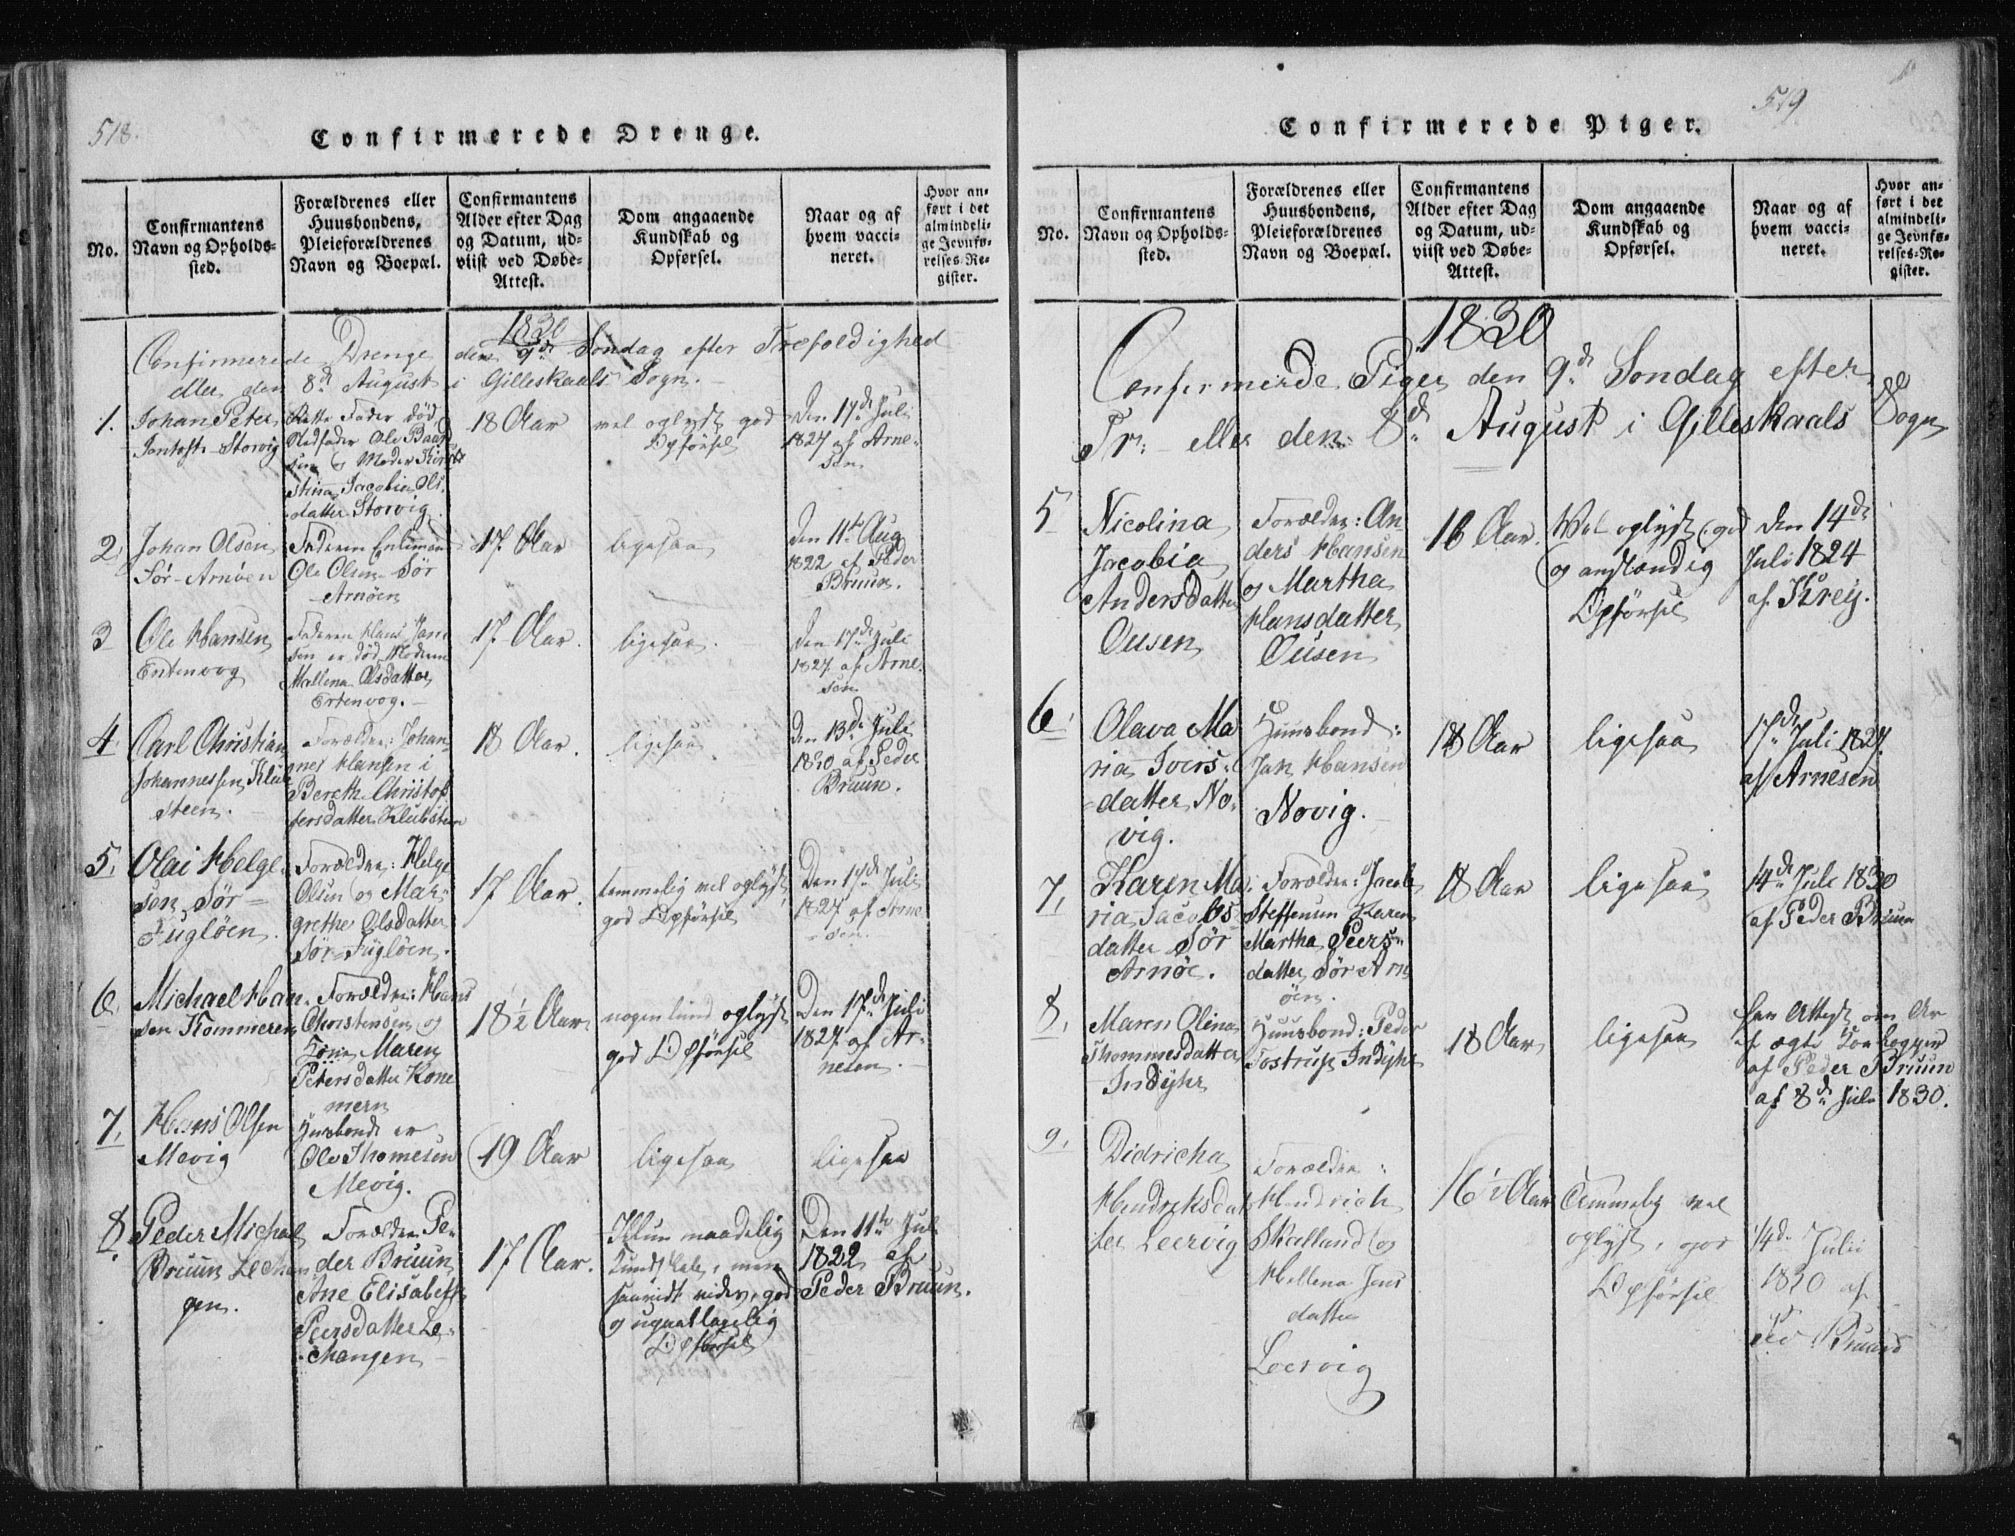 518.
Confirmerede Drenge.
No.
Confirmantens
Navn og Opholds-
sted.
Forældrenes eller
Huusbondens,
Pleieforældrenes
Navn og Boepæl.
Confirmantens
Alder efter Dag
og Datum, ud-
viist ved Døbe-
Attest.
Dom angaaende
Kundskab og
Opførsel.
Naar og af
hvem vacci-
neret.
Hvor an-
ført i det
almindeli-
ge Jevnfø-
relses-Re-
gister.
1830
Confirmerede Drenge den 9de Søndag efter Trefoldighed
eller den 8de August i Gilleskaals Sogn.
1.
Johan Peter
Jentoft Storvig
Rette Fader død
Stedfader Ole Baard
sen og Moder Kirst
stina Jacobia Ols
datter Storvig.
18 Aar
vel oplyst god
Opførsel
Den 17de Juli
1827 af Arne-
sen
2.
Johan Olsen
Sør-Arnøen
Faderen Enkemand
Ole Olsen Sør
Arnøen
17. Aar
ligesaa
Den 11te Aug
1822 af Peder
Bruun.
3
Ole Hansen
Entenvog
Faderen Hans Jan
sen er død Moderen
Mallena Olsdatter
Ertenvog.
17 Aar.
ligesaa.
Den 17de Juli
1827 af Arne-
sen
4.
Carl Christian
Johannessen Klub
steen.
Forældre: Johan
nes Hansen i
Bereth Christof
fersdatter Klubsteen
18 Aar.
ligesaa.
Den 13de Juli
1820 af Peder
Bruun.
5.
Olai Helge-
sen, Sør-
Fugløen.
Forældre: Helge
Olsen og Mar-
grethe Olsdatter
Sør-Fugløen.
17 Aar.
temmelig vel oplyst,
god Opførsel
Den 17de Juli
1827 af Arne-
sen.
6
Michael Han-
sen Kommeren
Forældre: Hans
Christensen og
Kone Maren
Petersdatter Kone
mern
18½ Aar.
nogenlund oplyst
god Opførsel
Den 17de Juli
1827 af Ar-
nesen.
7.
Hans Olsen
Mevig
Husbonde er
Ole Thomesen
Mevig.
19 Aar
ligesaa
ligesaa
8.
Peder Michael
Bruun Lechan
gen.
Forældre Pe-
der Bruun
Ane Elisabeth
Peersdatter Le-
changen
17 Aar.
Kun maadelig
Kundskab, men
saavidt vides, god
og upaaklagelig
Opførsel
Den 11te Juli
1822 af
Peder Bruun.
519
Confirmerede Piger.
No.
Confirmantens
Navn og Opholds-
sted.
Forældrenes eller
Huusbondens,
Pleieforældrenes
Navn og Boepæl.
Confirmantens
Alder efter Dag
og Datum, ud-
viist ved Døbe-
Attest.
Dom angaaende
Kundskab og
Opførsel.
Naar og af
hvem vacci-
neret.
Hvor an-
ført i det
almindeli-
ge Jevnfø-
relses-Re-
gister.
1830
Confirmerde Piger den 9de Søndag efter
Tr: eller den 8de August i Gilleskaals Sogn
5
Nicolina
Jacobia
Andersdatter
Ousen
Forældre: An
ders Hansen
og Martha
Hansdatter
Ousen
16 Aar.
Vel oplyst, god
og anstændig
Opførsel
Den 14de
Juli 1824
af Kreij.
6.
Olava Ma
ria Ivers-
datter No-
vig.
Huusbond:
Jan Hansen
Novig.
18 Aar
ligesaa
17de Juli 1827
af Arnesen
7.
Karen Ma
ria Jacobs
datter Sør
Arnøe.
Forældre: Jacob
Steffensen Karen
Martha Peers-
datter Sør Arn
øen.
18 Aar
ligesaa
14de Juli 1830
af Peder Bruun
8.
Maren Olina
Thommesdatter
Indyhr
Huusbond: Peder
Tostrup Indyhr
18 Aar
ligesaa
har Attest om Ar
af ægte Koekopper
af Peder Bruun
af 8de Juli 1830.
9.
Didricha
Hendriksdat
ter Leervig
Forældre:
Hendrich
Skalland og
Hellena Jens
datter
Leervig
16½ Aar
Temmelig vel
oplyst, god
Opførsel
14de Julii
1820 af
Ped Bruun